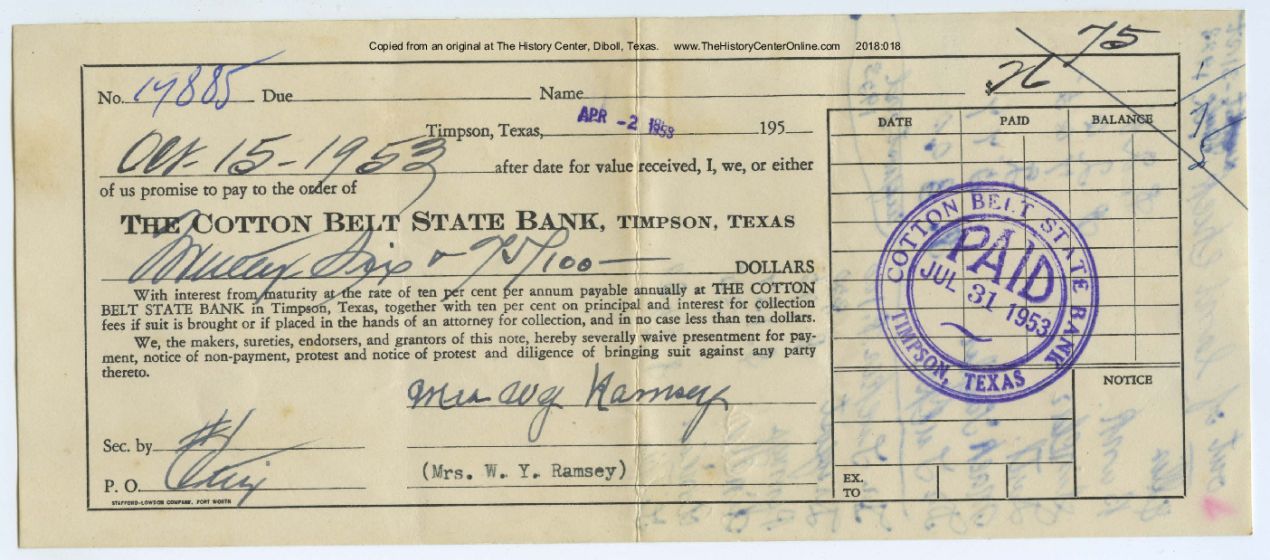 Copied from an original at The History Center, Diboll, Texas. www.TheHistoryCenterOnline.com 2018:018
75
No. 17885 Due Name $26
Timpson, Texas, APR -2 1953 195
Oct. 15 - 1953 after date for value received, I, we, or either
of us promise to pay to the order of
THE COTTON BELT STATE BANK, TIMPSON, TEXAS
Twenty Six & 75/100 DOLLARS
With interest from maturity at the rate of ten per cent per annum payable annually at THE COTTON
BELT STATE BANK in Timpson, Texas, together with ten per cent on principal and interest for collection
fees if suit is brought or if placed in the hands of an attorney for collection, and in no case less than ten dollars.
We, the makers, sureties, endorsers, and grantors of this note, hereby severally waive presentment for pay-
ment, notice of non-payment, protest and notice of protest and diligence of bringing suit against any party
thereto.
Mrs W Y Ramsey
Sec. by
(Mrs. W. Y. Ramsey)
P. O.
STAFFORD-LOWDON COMPANY, FORT WORTH
DATE PAID BALANCE
COTTON BELT STATE BANK
PAID
JUL 31 1953
TIMPSON, TEXAS
NOTICE
EX.
TO